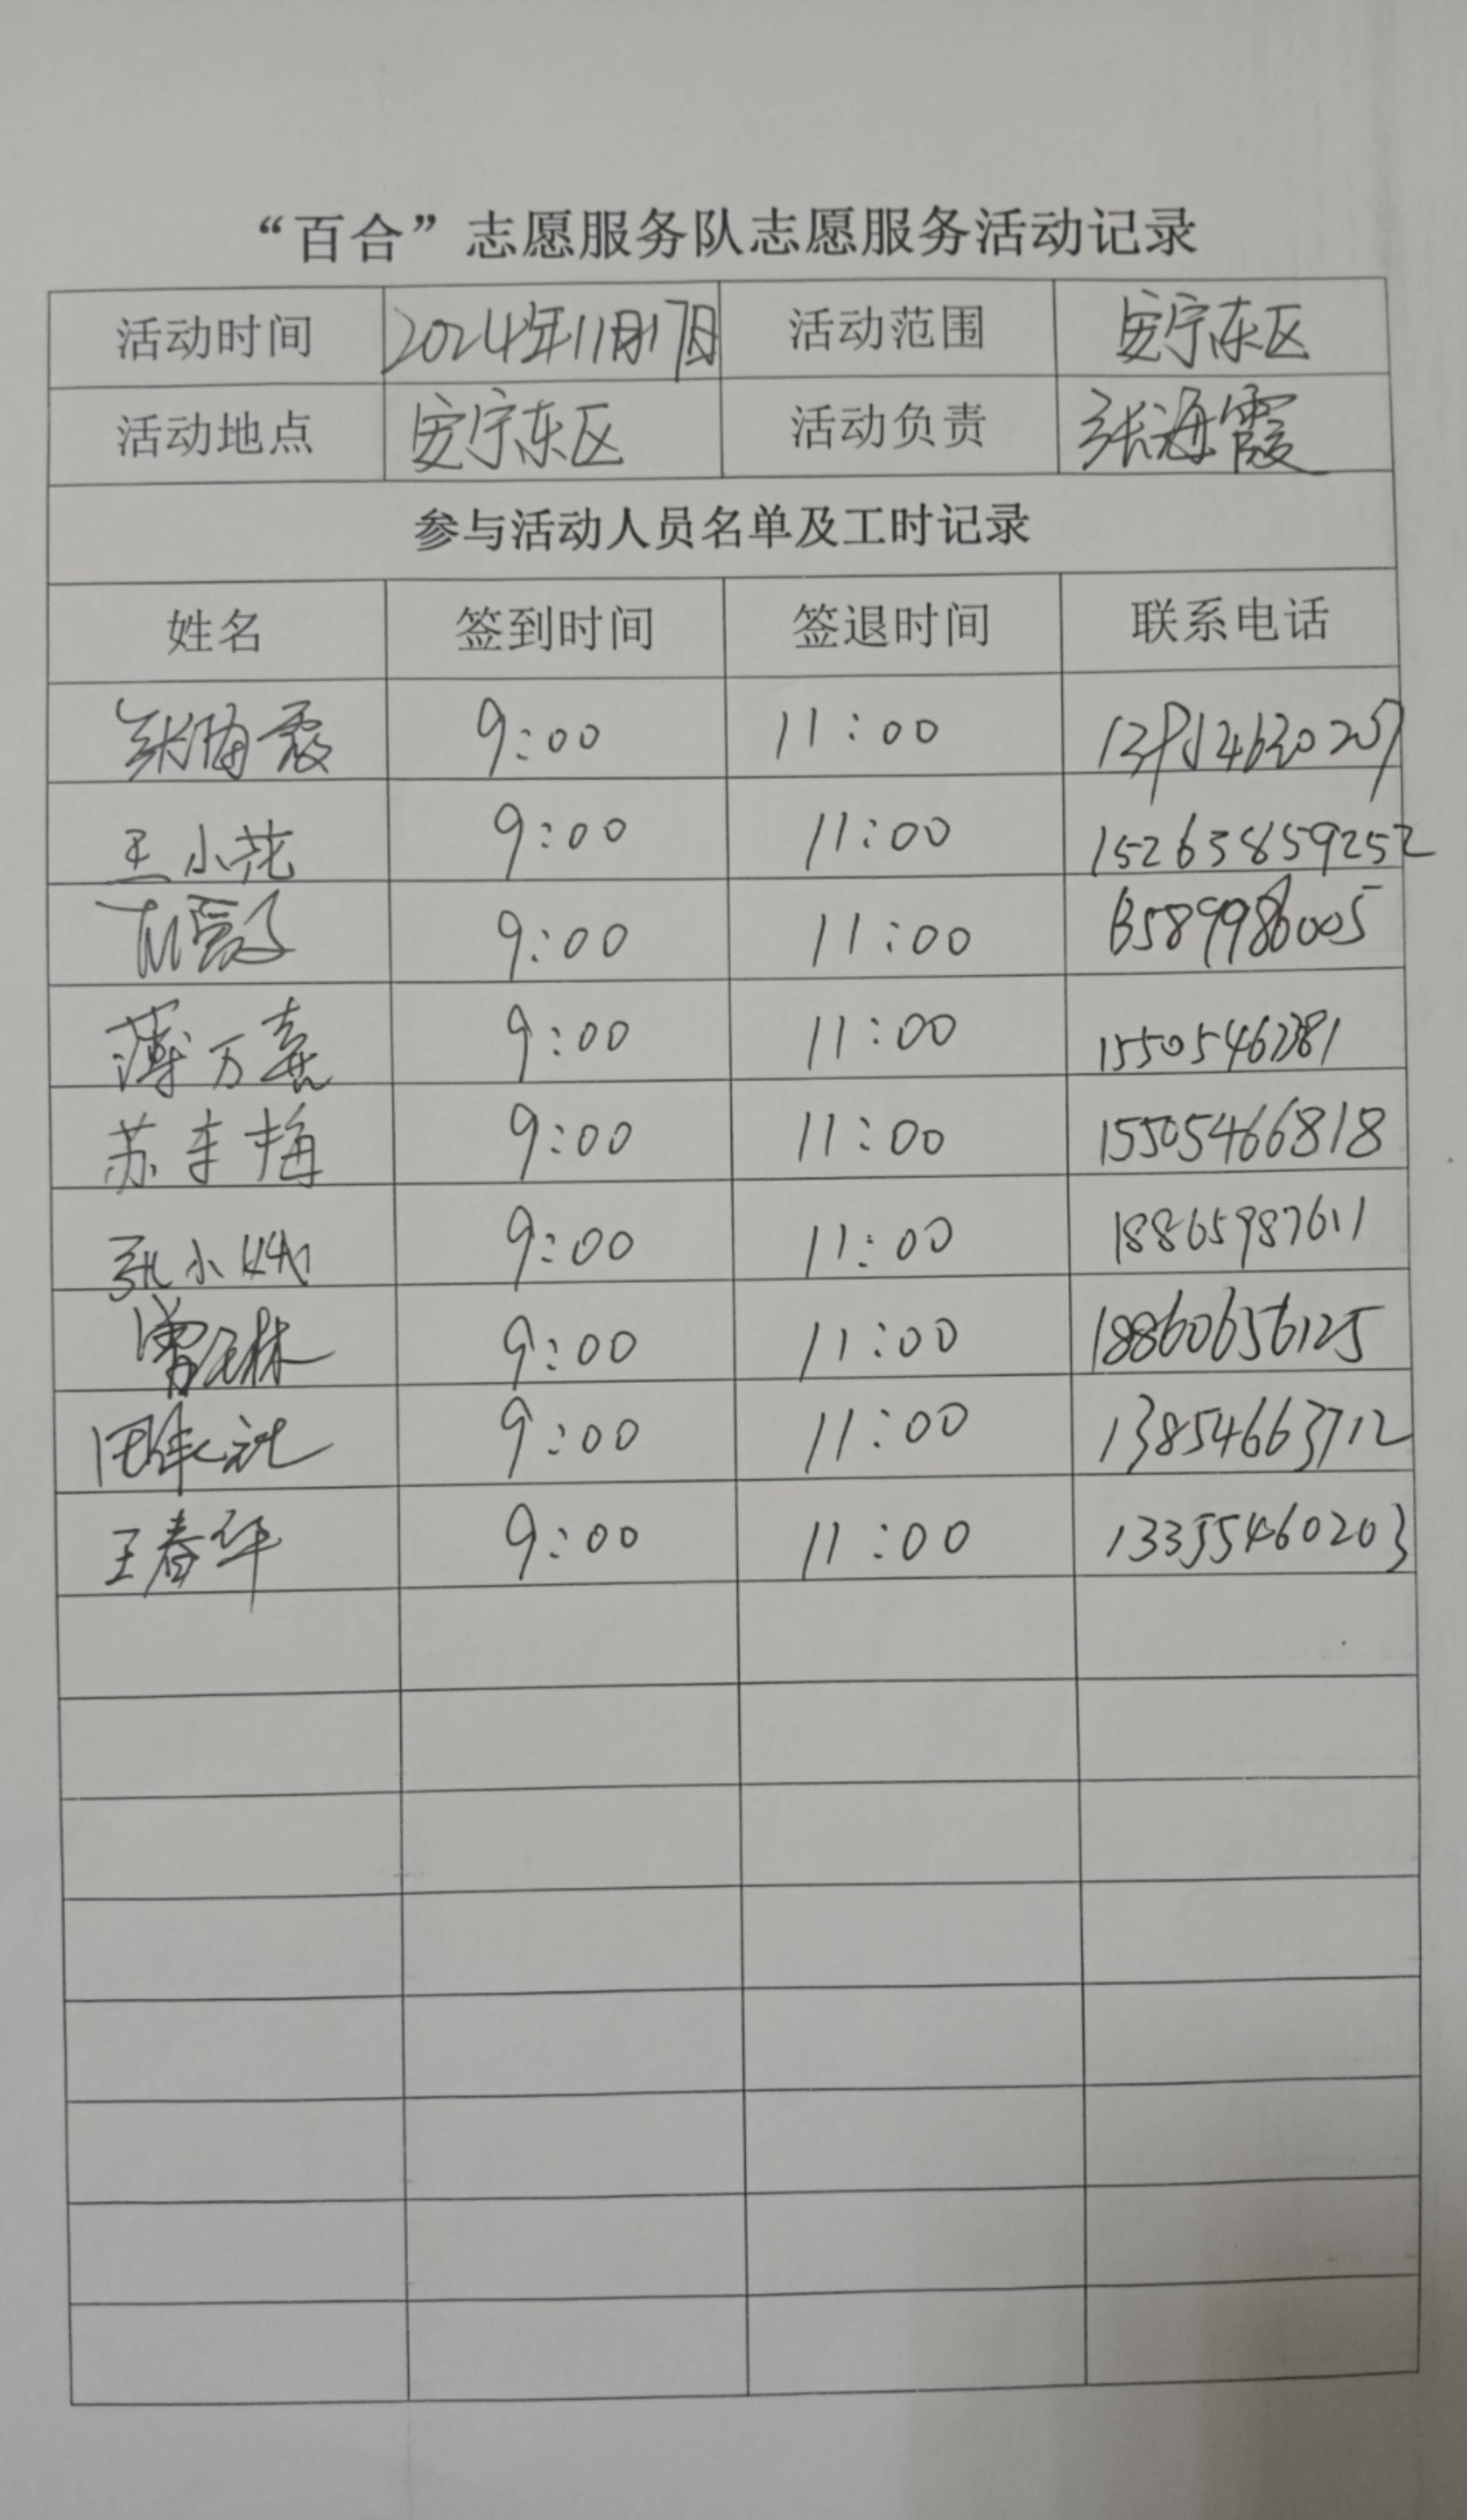 “百合”志愿服务队志愿服务活动记录
活动时间 2024年11月17日 活动范围 安宁东区
活动地点 安宁东区 活动负责 张海霞
参与活动人员名单及工时记录
姓名 签到时间 签退时间 联系电话
张海霞 9:00 11:00
王小花 9:00 11:00 152638659252
9:00 11:00 13589986005
薄万喜 9:00 11:00 15505462381
苏丰梅 9:00 11:00 15505466818
张小 9:00 11:00 18865987611
9:00 11:00 18860656125
9:00 11:00 13854663712
王春华 9:00 11:00 13355460203